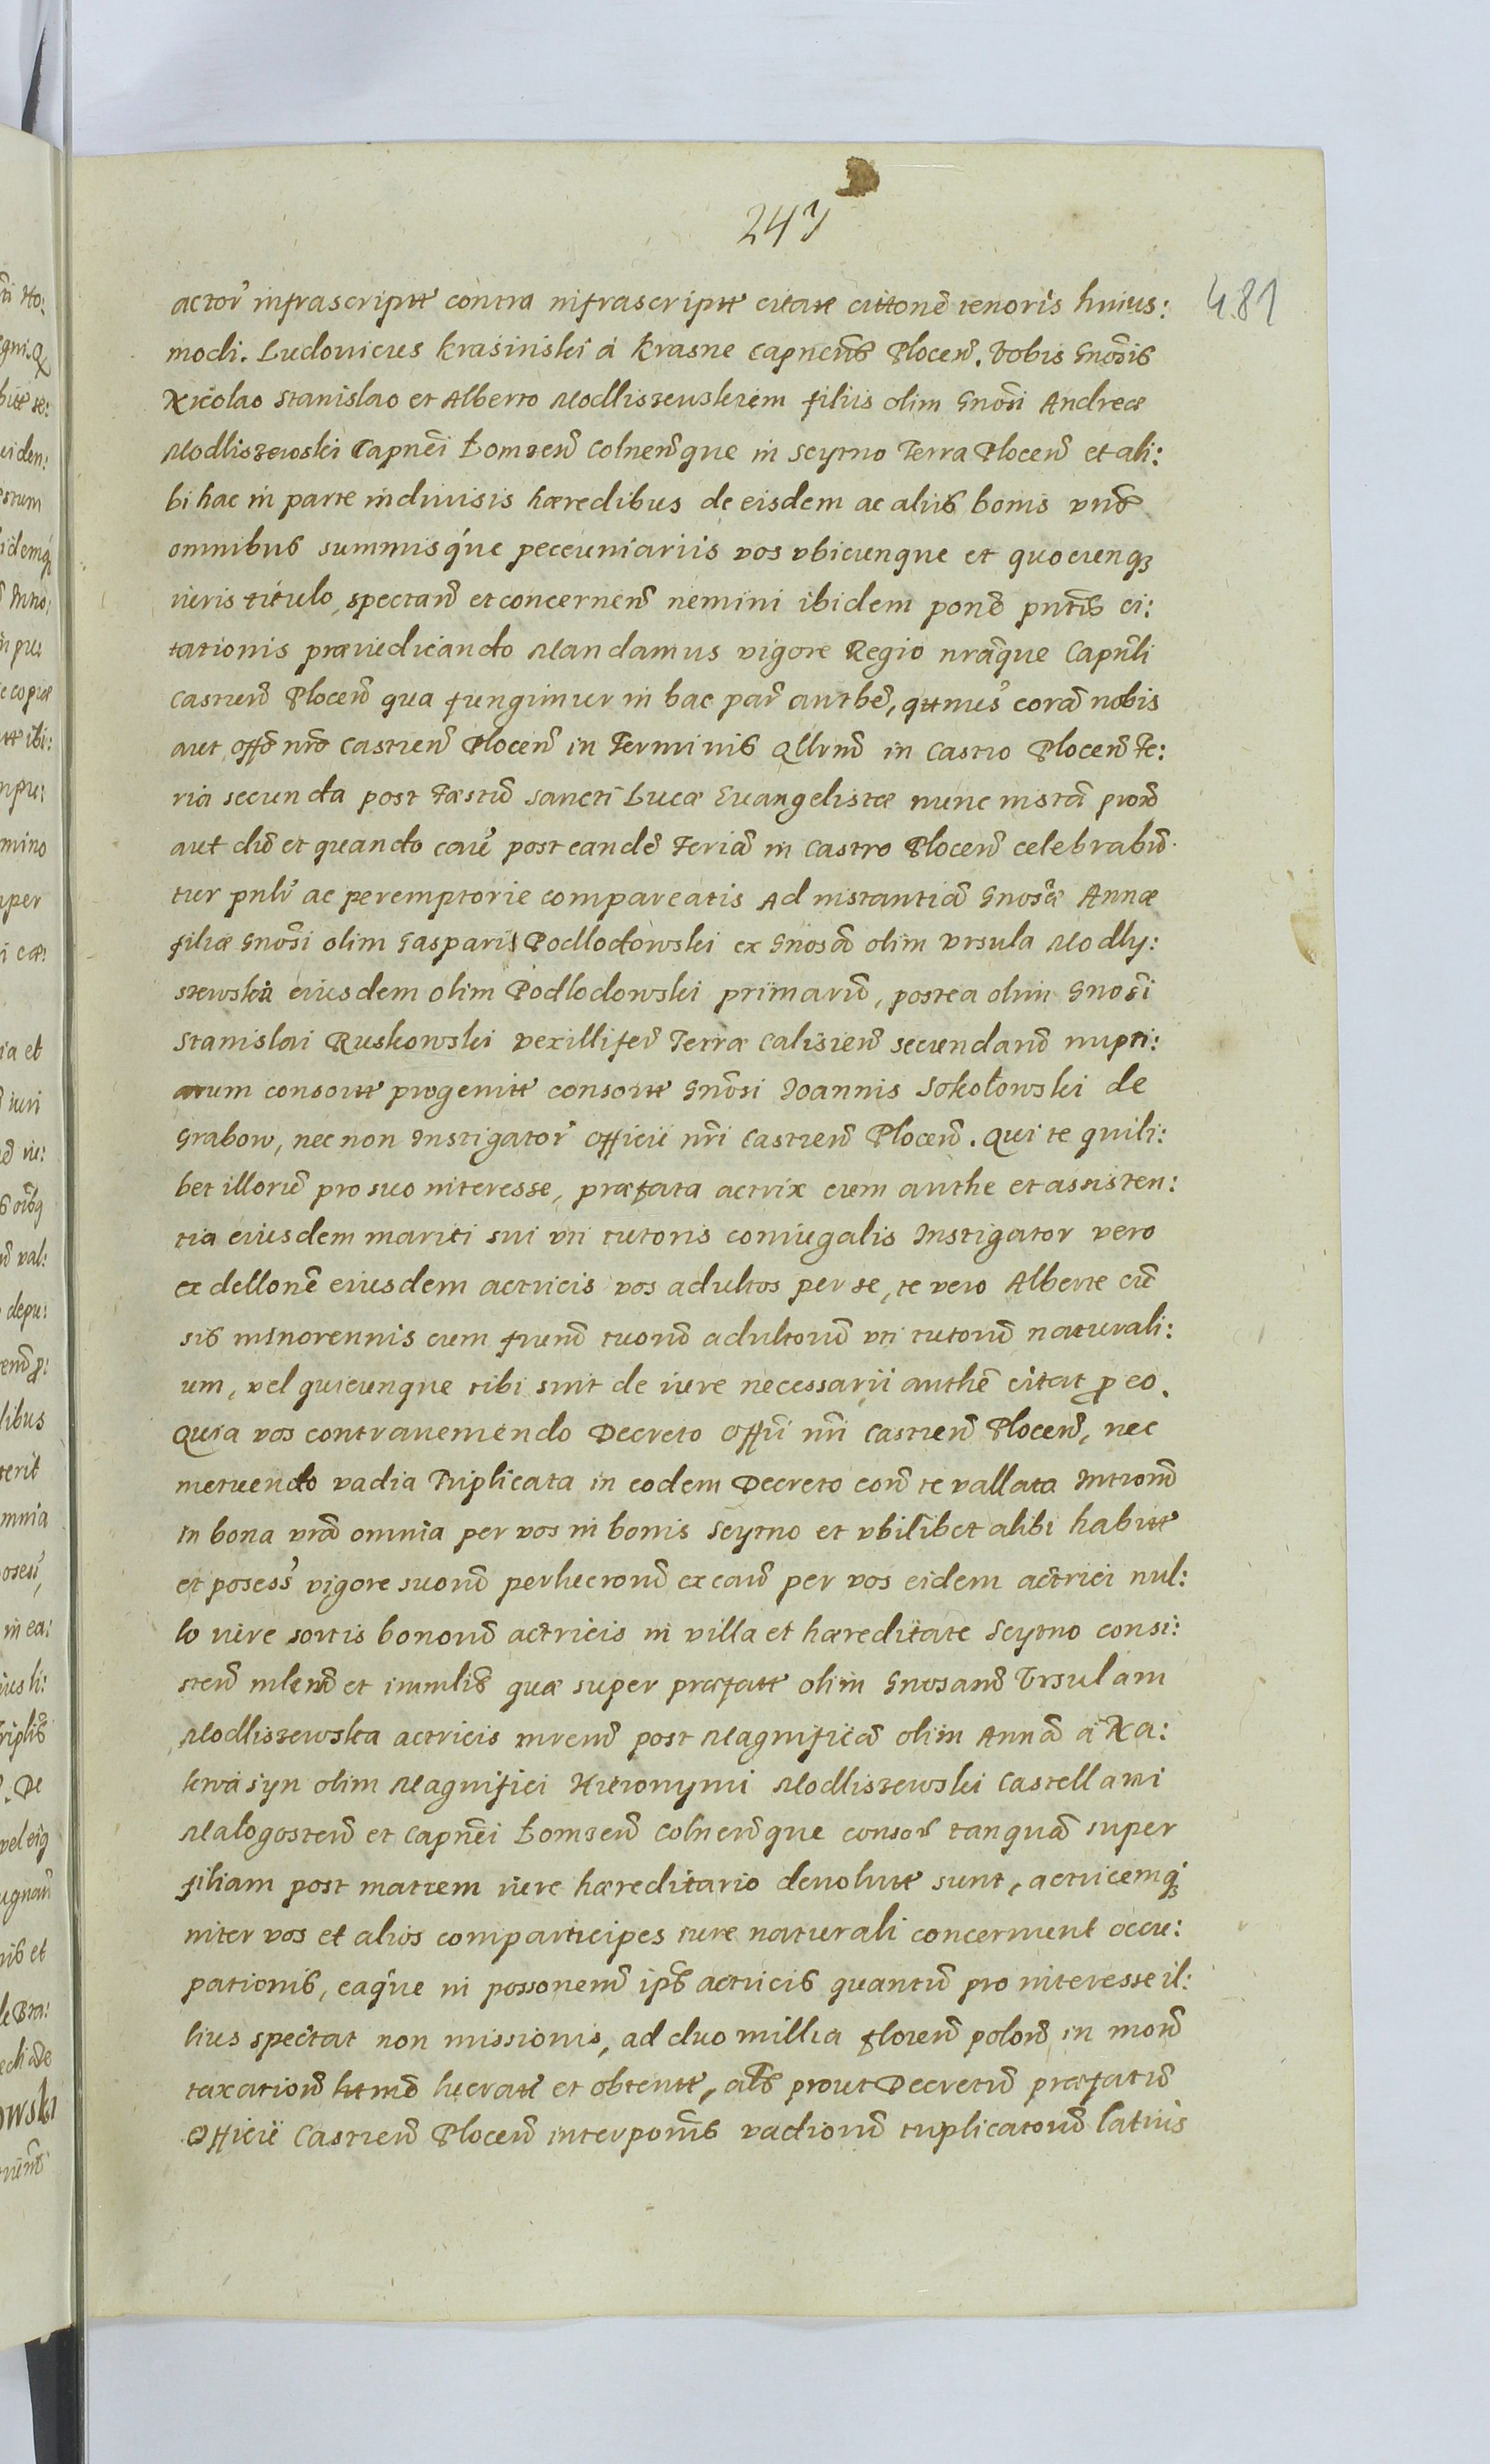 247
481
actor̃ infrascriptt̃ contra infrascriptt̃ citatt̃ cittonẽ tenoris huius:
modi. Ludovicus Krasinski a Krasne Capneñs Plocen̄. Vobis Gnõsis
Nicolao Stanislao et Alberto Modliszewskiem filiis olim Gnõsi Andreæ
Modliszewski Capnẽi Łomzen̄ Colnen̄que in Scytno Terra Plocen̄ et ali:
bi hac in parte indiuisis hæredibus de eisdem ac aliis bonis vrĩs
omnibus summisque peccuniariis vos vbicunque et quocunqꝫ
iuris titulo, spectan̄ et concernen̄ nemini ibidem ponõ pntĩs ci:
tationis præiudicando Mandamus vigore Regio nrãque Capnĩli
castren̄ Plocen̄ qua fungimur in hac par̃ authẽ, qttnus̃ corã nobis
aut offõ nrõ castren̄ Plocen̄ in Terminis Qllrnũ in Castro Plocen̄ Fe:
ria secunda post Fæstũ Sancti Lucæ Euangelistæ nunc instañ proxõ
aut diũ et quando cauẽ post eandẽ Feriã in Castro Plocen̄ celebrabũ
tur pnlr̃ ac peremptorie compareatis Ad instantiã Gnosæ̃ Annæ
filiæ Gnõsi olim Gasparis Podlodowski ex Gnosã olim Vrsula Modly:
szewska eiusdem olim Podlodowski primariũ, postea olim Gnosĩ
Stanislai Ruskowski vexilliferĩ Terræ Calisien̄ secundarũ nupti:
arum consortt̃ progenitt̃ consortt̃ Gnõsi Joannis Sokołowski de
Grabow, nec non Instigator̃ Officii nrĩ Castren̄ Plocen̄. Qui te quili:
bet illorũ pro suo interesse, præfata actrix cum authe et assisten:
tia eiusdem mariti sui vti tutoris coniugalis Instigator vero
ex dellonẽ eiusdem actricis vos adultos per se, te vero Alberte cũ
sis minorennis cum frunũ tuorũ adultorũ vti tutorũ naturali:
um, vel quicunque tibi sint de iure necessarii authẽ citat ꝓ eo.
Quia vos contraueniendo Decreto Offĩi nrĩ Castren̄ Plocen̄, nec
metuendo vadia Triplicata in eodem Decreto conñ te vallata Intrionũ
In bona vrã omnia per vos in bonis Scytno et vbilibet alibi habitt̃
et posess̃ vigore suorũ perlucrorũ ex cauñ per vos eidem actrici nul:
lo iure sortis bonorũ actricis in villa et hæreditate Scytno consi:
sten̄ mlenñ et immlis̃ quæ super præfatt̃ olim Gnosanñ Vrsulam
Modliszewska actricis mrenñ post Magnificã olim Annã a Ra:
kwasyn olim Magnifici Hieronymi Modliszewski Castellani
Malogosten̄ et Capnẽi Łomzen̄ Colnen̄que consor̃ tanquã super
filiam post matrem iure hæreditario deuolutt̃ sunt, actricemqꝫ
inter vos et alios comparticipes iure naturali concernunt occu:
pationis, eaque in possonenñ ips̃ actricis quantũ pro interesse il:
lius spectat non missionis, ad duo millia floren̄ polonñ in monñ
taxationñ httmõ lucratt̃ et obtentt̃, als̃ prout Decretũ præfatũ
Officii Castren̄ Plocen̄ interponĩs vadiorũ triplicatorũ latius